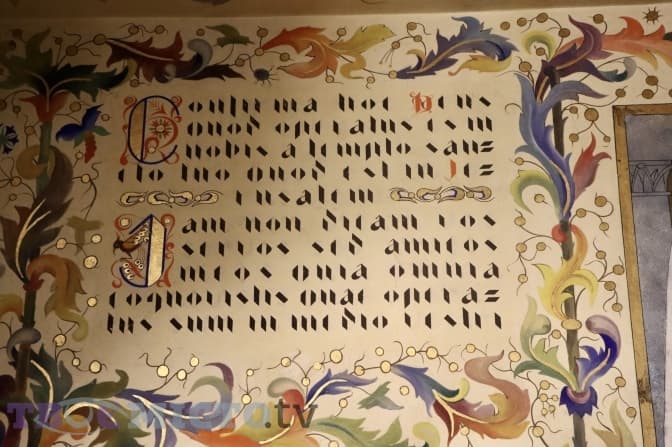 Confirma hoc Deus
quod operatus es in
nobis a templo sanc
to tuo quod est in Ie
rusalem
Iam non dicam vos
servos sed amicos
meos quia omnia
cognovistis quae operat
us sum in medio vestri
ТВОЄ МІСТО.tv